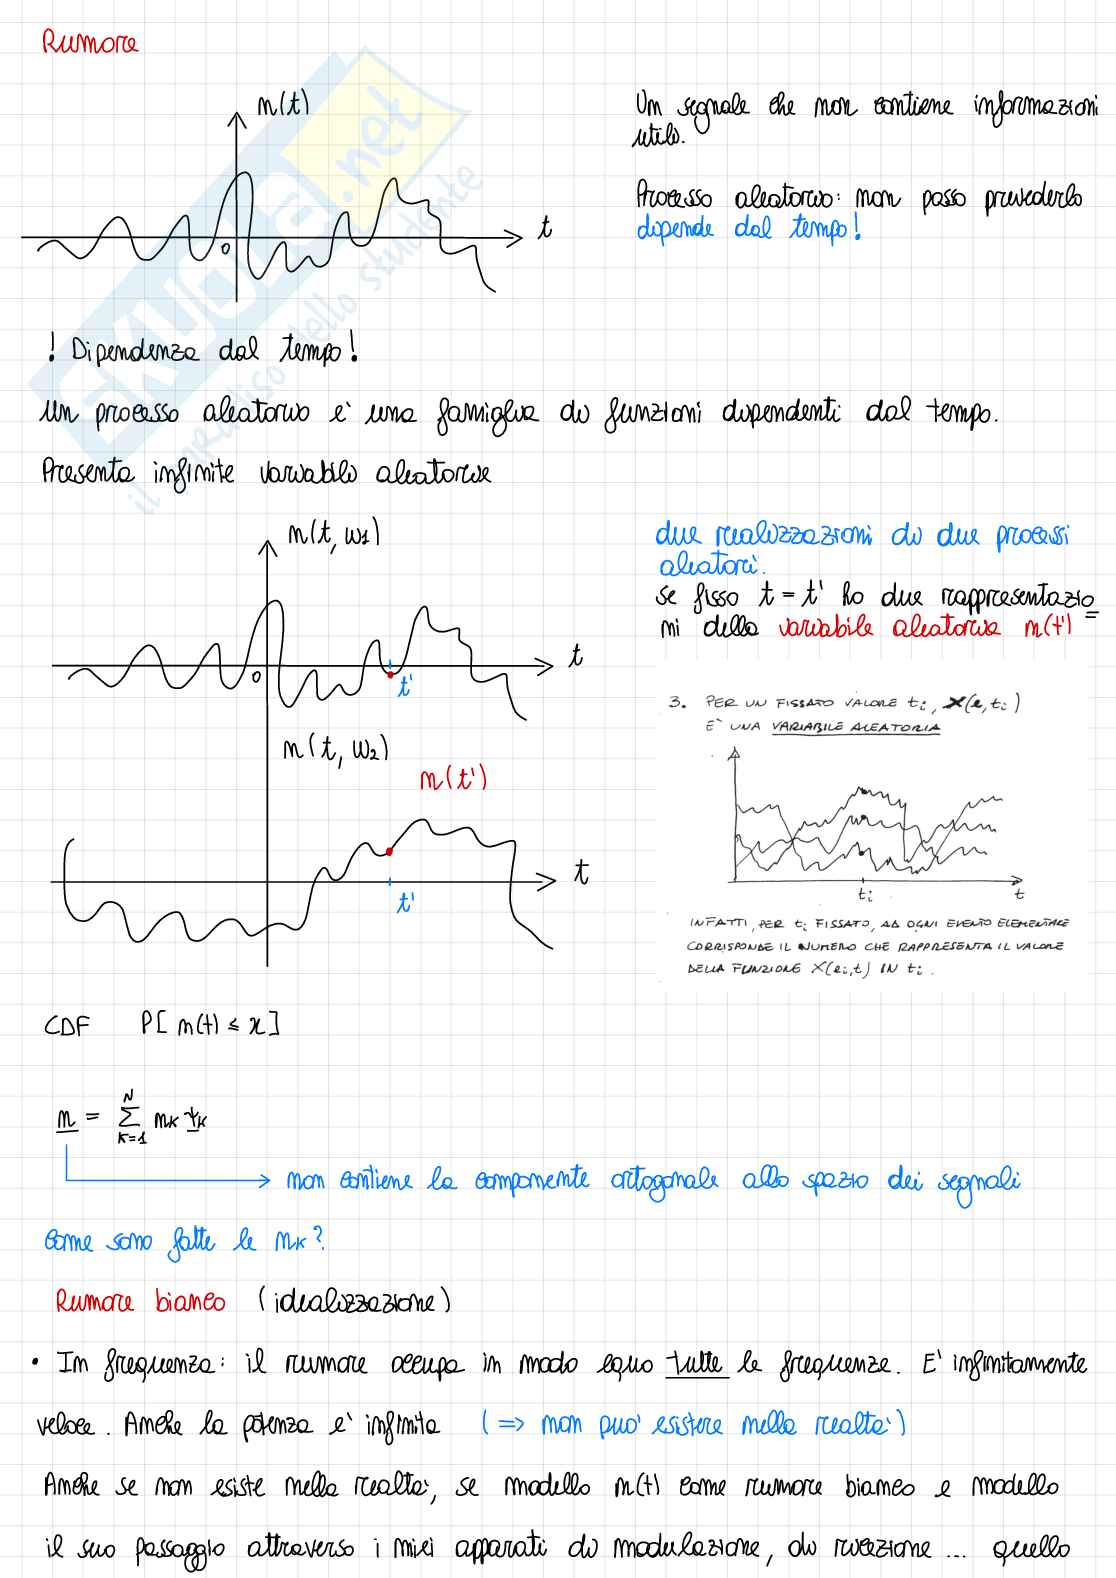 Rumore
n(t)
t
0
Un segnale che non contiene informazioni
utili.
Processo aleatorio: non posso prevederlo
dipende dal tempo!
SKUOLA.net
il paradiso dello studente
! Dipendenza dal tempo!
Un processo aleatorio è una famiglia di funzioni dipendenti dal tempo.
Presenta infinite variabili aleatorie
n(t, ω1)
t
0
t'
n(t, ω2)
n(t')
t
t'
due realizzazioni di due processi
aleatori.
se fisso t = t' ho due rappresentazio
ni della variabile aleatoria n(t') =
3. PER UN FISSATO VALORE ti, X(e,ti)
E` UNA VARIABILE ALEATORIA
ti
t
INFATTI, PER ti FISSATO, AD OGNI EVENTO ELEMENTALE
CORRISPONDE IL NUMERO CHE RAPPRESENTA IL VALORE
DELLA FUNZIONE X(ei,t) IN ti.
CDF P[ n(t) ≤ x ]
n = Σ nk ψk
N
K=1
non contiene la componente ortogonale allo spazio dei segnali
Come sono fatte le nk?
Rumore bianco (idealizzazione)
• In frequenza: il rumore occupa in modo equo tutte le frequenze. E' infinitamente
veloce. Anche la potenza e' infinita (=> non puo' esistere nella realta')
Anche se non esiste nella realta', se modello n(t) come rumore bianco e modello
il suo passaggio attraverso i miei apparati di modulazione, di ricezione ... quello